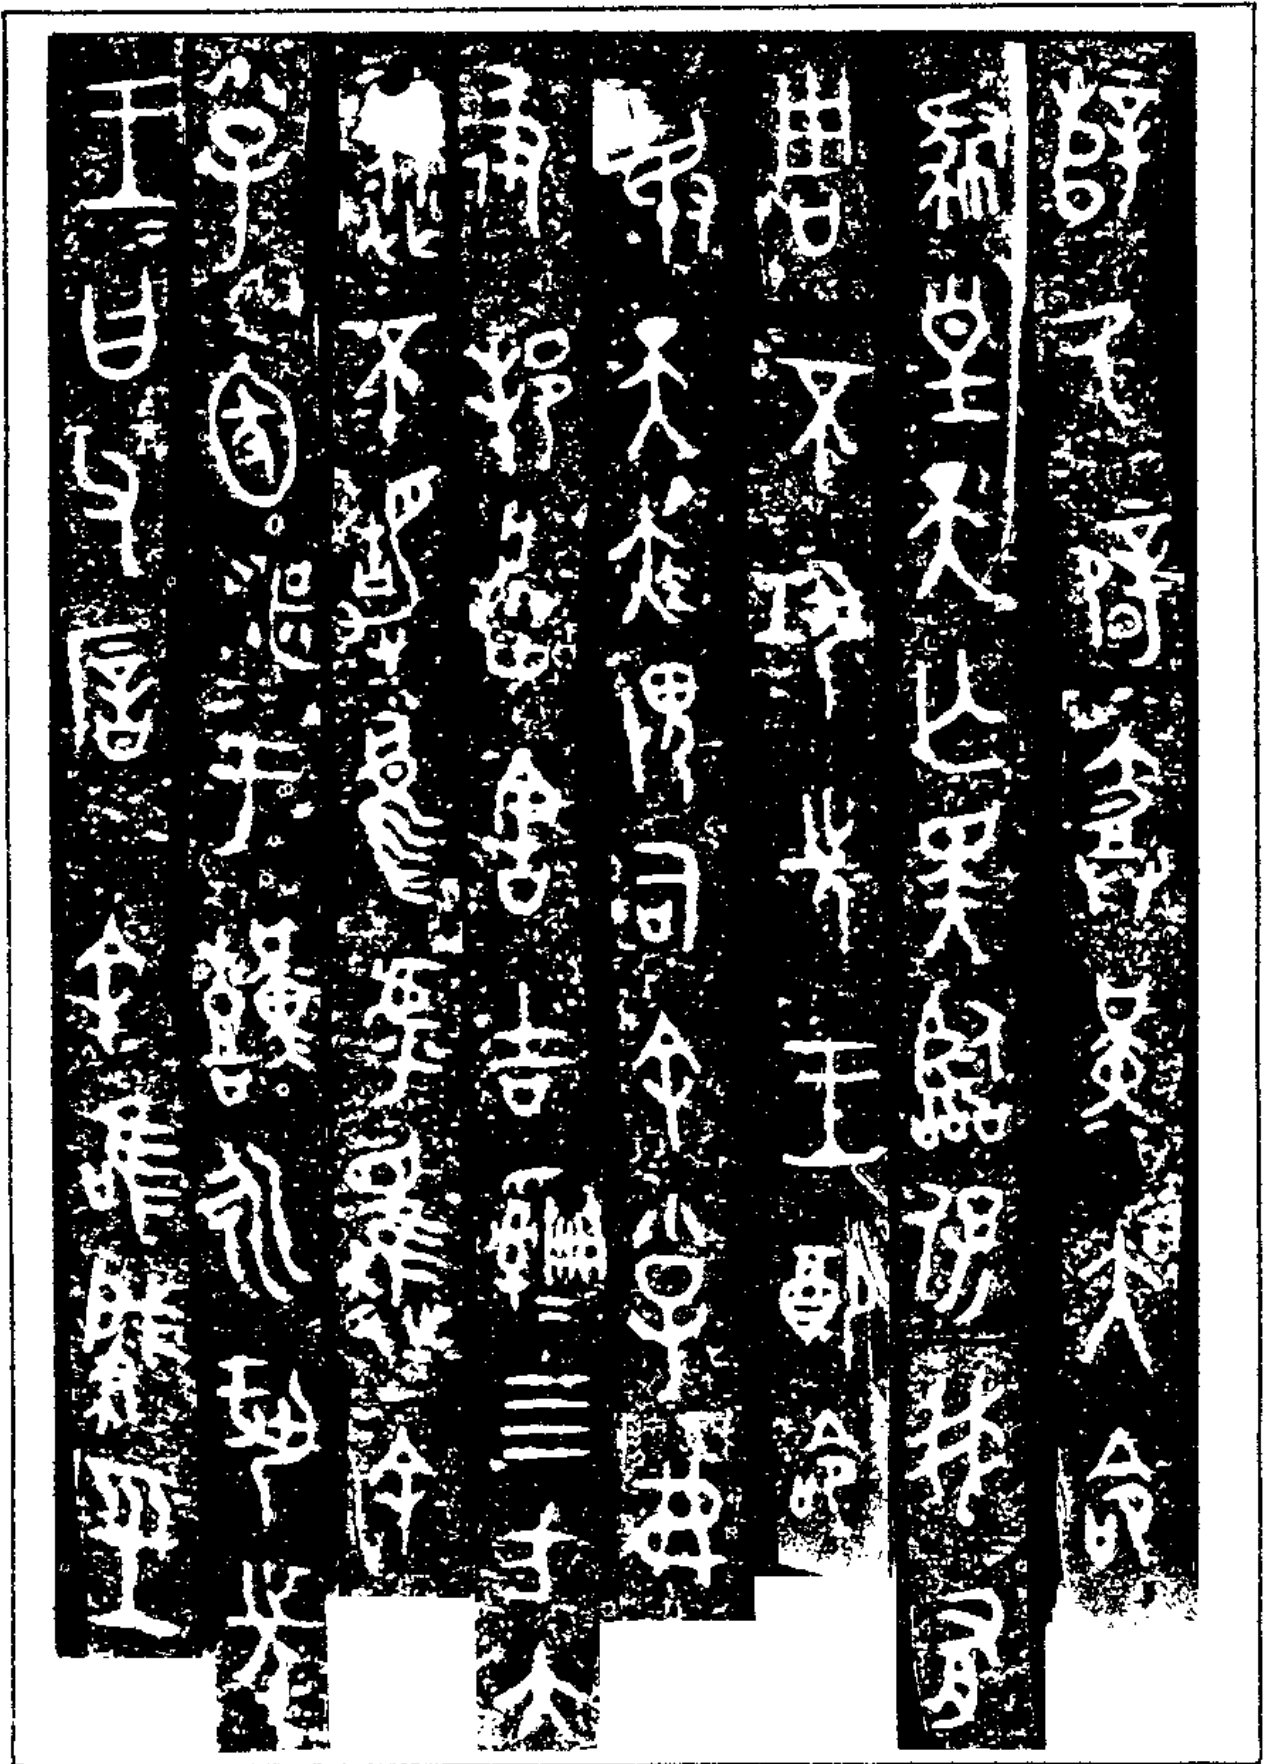 辥氒辟爵堇大命
肄皇天亡斁臨保我有
周不巩先王配命
敃天疾畏司余小子弗
彶邦將害吉䚄=四方大
從不靜烏虖趯余
小子圂湛于艱永巩先
王=曰父厝今余唯肇巠